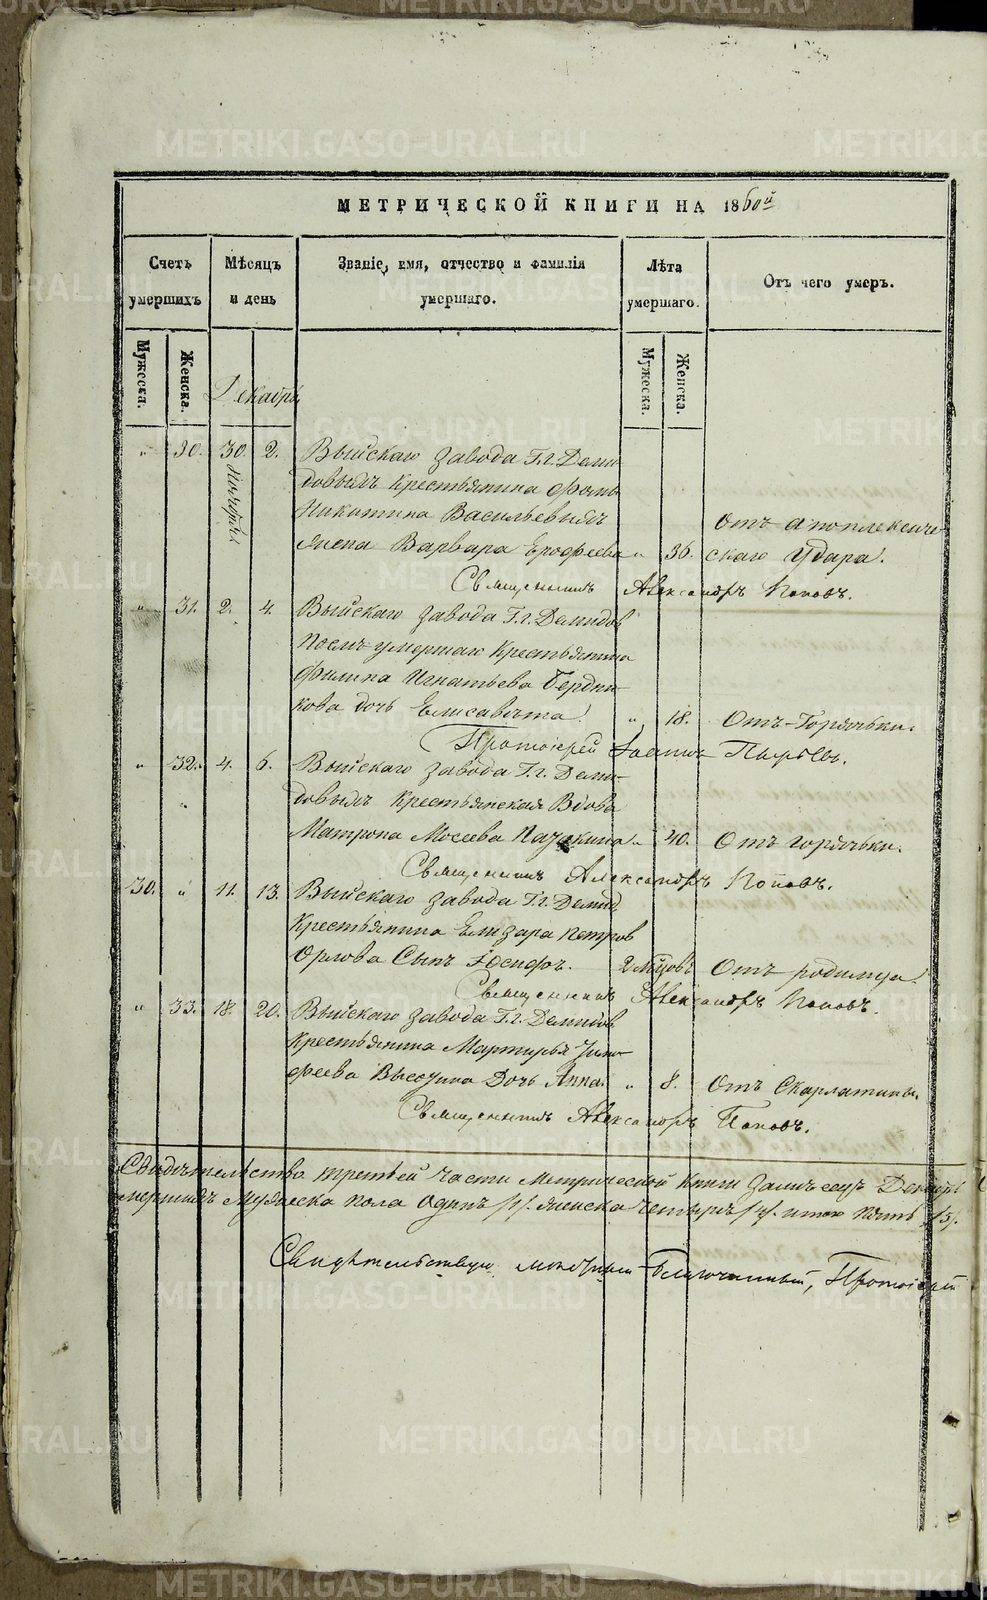 МЕТРИЧЕСКОЙ КНИГИ НА 1860й
Счетъ умершихъ
Мѣсяцъ и день
Званіе, имя, отчество и фамилія умершаго.
Лѣта умершаго.
Отъ чего умеръ.
Мужеска.
Женска.
Мужеска.
Женска.
Декабрь
" 30. 30. 2. Выйскаго завода Г.г. Деми-
Ноября
довыхъ крестьянина Фомы
Никитина Васильевыхъ
жена Варвара Ерофеева " 36. Отъ апоплексиче-
скаго удара.
Священникъ Александръ Поповъ.
" 31. 2. 4. Выйскаго завода Г.г. Демидов
после умершаго крестьянина
Филипа Игнатьева Бердни-
кова дочь Елисавета " 18. Отъ Горячьки.
Протоіерей Іоаннъ Пырьевъ.
" 32. 4. 6. Выйскаго завода Г.г. Деми-
довыхъ крестьянская вдова
Матрона Мосеева " 40. Отъ горячьки.
Священникъ Александръ Поповъ.
30. " 11. 13. Выйскаго завода Г.г. Демид.
Крестьянина Елизара Петров
Орлова Сынъ Іосифъ. 2 мѣсцовъ Отъ родимца
Священникъ Александръ Поповъ.
" 33. 18. 20. Выйскаго завода Г.г. Демидов
Крестьянина Мартирья Тимо-
феева Дочь Анна. " 8. Отъ Скарлатины.
Священникъ Александръ Поповъ.
Свидѣтельство третьей части Метрической Книги за мѣсяцъ Декабрь
умершихъ Мужеска пола Одинъ /1/. женска четыре /4/. итого пять /5/.
Свидѣтельствую Благочинный, Протоіерей